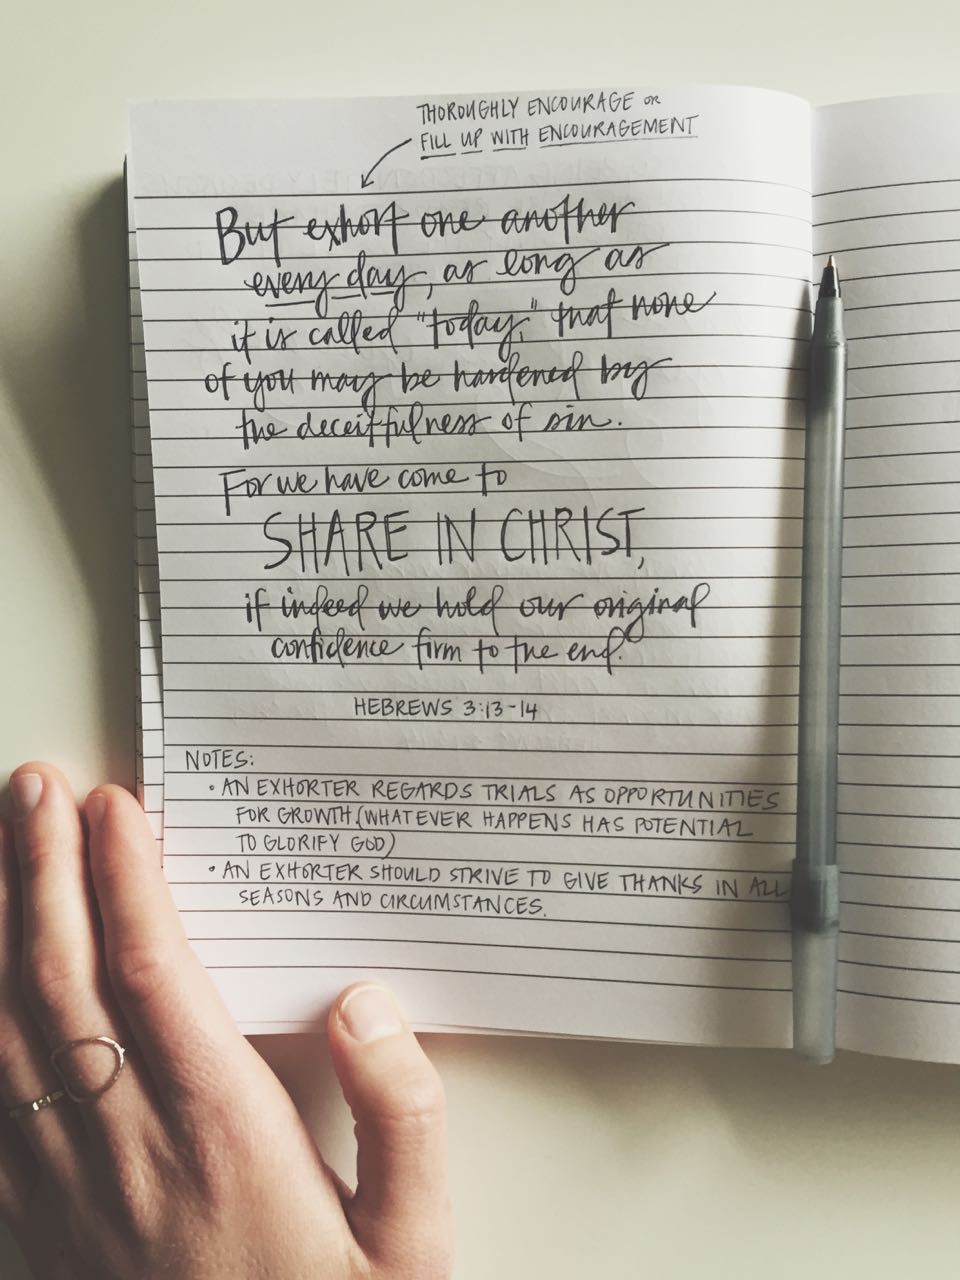 THOROUGHLY ENCOURAGE OR
FILL UP WITH ENCOURAGEMENT
But exhort one another
every day, as long as
it is called "today," that none
of you may be hardened by
the deceitfulness of sin.
For we have come to
SHARE IN CHRIST,
if indeed we hold our original
confidence firm to the end.
HEBREWS 3:13-14
NOTES:
• AN EXHORTER REGARDS TRIALS AS OPPORTUNITIES
FOR GROWTH. (WHATEVER HAPPENS HAS POTENTIAL
TO GLORIFY GOD)
• AN EXHORTER SHOULD STRIVE TO GIVE THANKS IN ALL
SEASONS AND CIRCUMSTANCES.